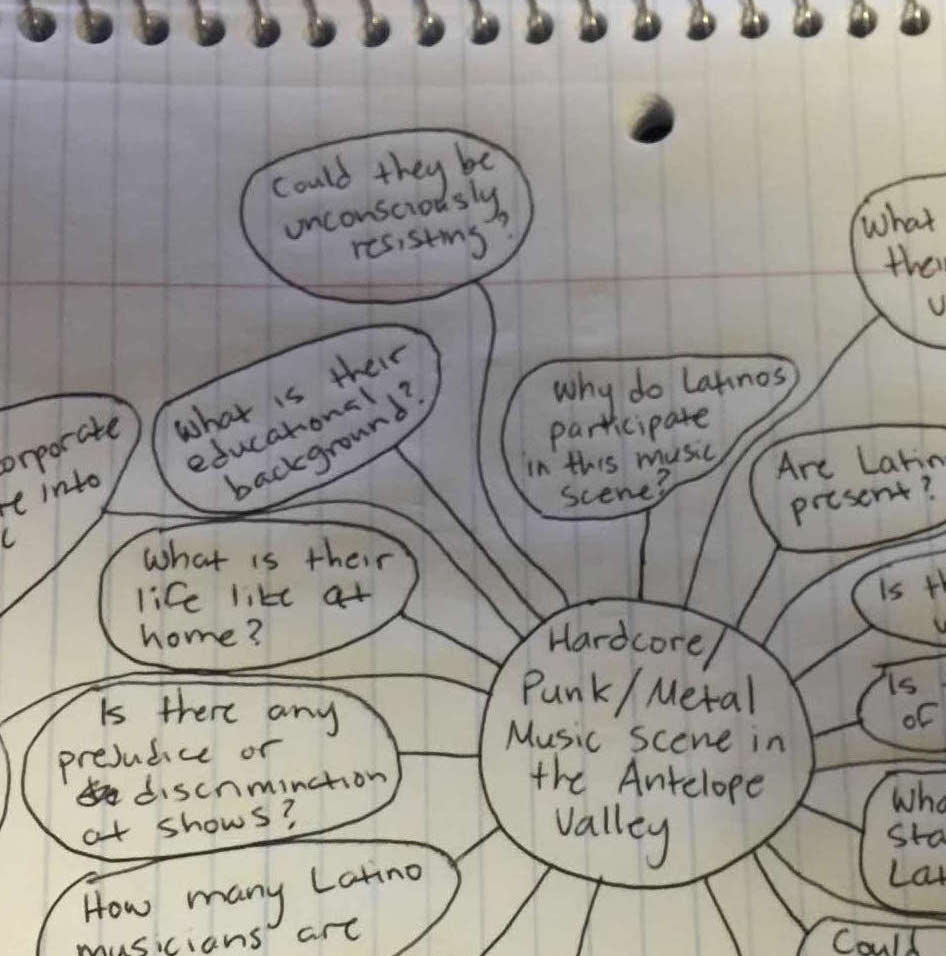 Could they be
unconsciously
resisting?
What
their
What is their
educational
background?
Why do Latinos
participate
in this music
scene?
orporate
into
Are Latin
present?
What is their
life like at
home?
Is th
Hardcore/
Punk/Metal
Music scene in
the Antelope
Valley
Is
of
Is there any
prejudice or
discrimination
at shows?
Wha
Sta
Lat
How many Latino
musicians are
Could